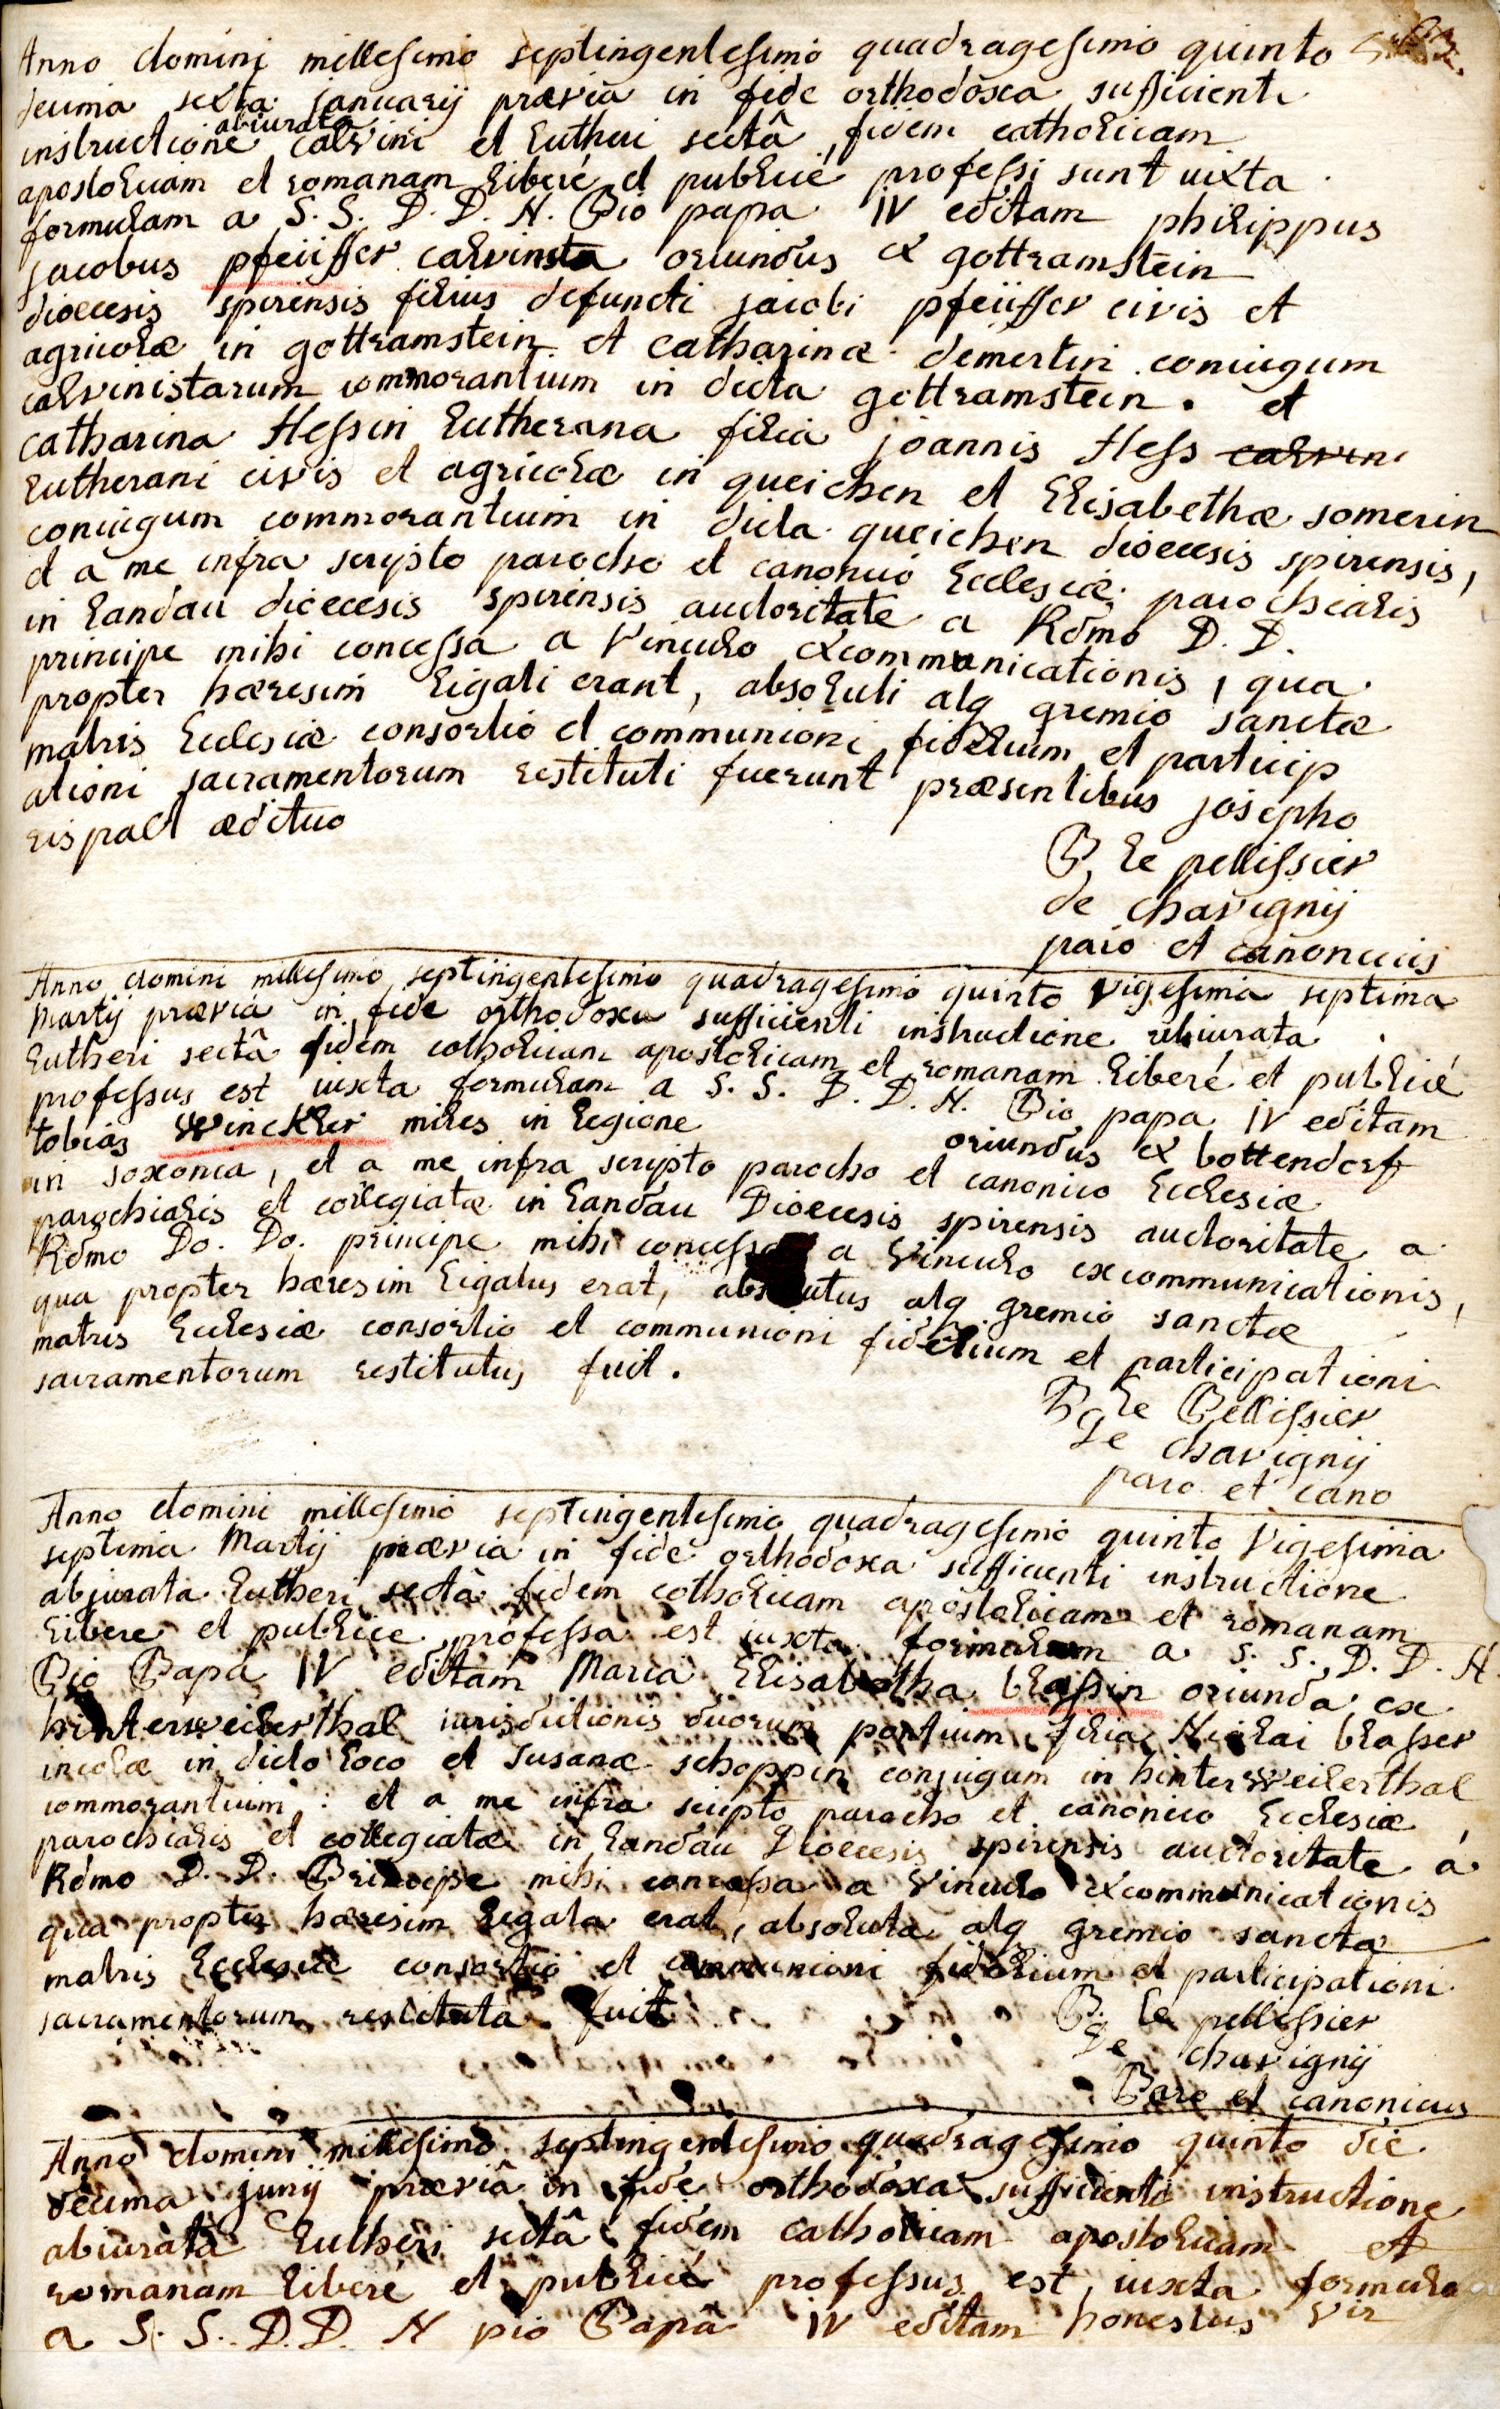 Anno domini millesimo septingentesimo quadragesimo quinto
decima sexta januarij prævia in fide orthodoxa sufficienti
abiurata
instructione calvini et lutheri sectâ, fidem catholicam
apostolicam et romanam liberé et publicé professi sunt iuxta
formulam a S. S. D. D. N. Pio papa IV editam philippus
jacobus pfeiiffer calvinista oriundus ex gottramstein
dioecesis spirensis filius defuncti jacobi pfeiiffer civis et
agricolæ in gottramstein et catharinæ demertin coniugum
calvinistarum commorantium in dicta gottramstein. et
catharina Hessin lutherana filia joannis Hess calvin
lutherani civis et agricolæ in queichen et Elisabethæ somerin
coniugum commorantium in dicta queichen dioecesis spirensis,
et a me infra scripto parocho et canonico Ecclesiæ parochialis
in landau dioecesis spirensis auctoritate a Rdmo D. D.
principe mihi concessa a vinculo excommunicationis, qua
propter hæresim ligati erant, absoluti atq gremio sanctæ
matris Ecclesiæ consortio et communioni fidelium et particip
ationi sacramentorum restituti fuerunt præsentibus josepho
rispalt ædituo
P. le pellissier
de chavignij
paro et canonicus
Anno domini millesimo septingentesimo quadragesimo quinto vigesima septima
Martij prævia in fide orthodoxa sufficienti instructione abiurata
lutheri sectâ fidem catholicam apostolicam et romanam liberé et publicé
professus est iuxta formulam a S. S. D. D. N. Pio papa IV editam
tobias winckler miles in legione oriundus ex bottendorf
in saxonia, et a me infra scripto parocho et canonico Ecclesiæ
parochialis et collegiatæ in landau Dioecesis spirensis auctoritate a
Rdmo Do. Do. principe mihi concessa a vinculo excommunicationis,
qua propter hæresim ligatus erat, absolutus atq gremio sanctæ
matris Ecclesiæ consortio et communioni fidelium et participationi
sacramentorum restitutus fuit.
P. le Pellissier
de chavignij
paro et cano
Anno domini millesimo septingentesimo quadragesimo quinto Vigesima
septima Martij prævia in fide orthodoxa sufficienti instructione
abjurata lutheri sectâ fidem catholicam apostolicam et romanam
libere et publice professa est iuxta formulam a S. S. D. D. N.
Pio Papa IV editam Maria Elisabetha blassin oriunda ex
hinterweilerthal iurisdictionis duorum pontium filia Nicolai blasser
incolæ in dicto loco et susanæ schoppin conjugum in hinterweilerthal
commorantium: et a me infra scripto parocho et canonico Ecclesiæ
parochialis et collegiatæ in landau Dioecesis spirensis auctoritate à
Rdmo D. D. Principe mihi concessa a vinculo excommunicationis
qua propter hæresim ligata erat, absoluta atq gremio sanctæ
matris Ecclesiæ consortio et communioni fidelium et participationi
sacramentorum restituta fuit
P. le pellissier
de chavignij
Paro et canonicus
Anno domini millesimo septingentesimo quadragesimo quinto die
decima junij præviâ in fide orthodoxa sufficienti instructione
abiurata lutheri sectâ fidem catholicam apostolicam et
romanam liberé et publicé professus est, iuxta formula
a S. S. D. D. N pio Papâ IV editam honestus vir